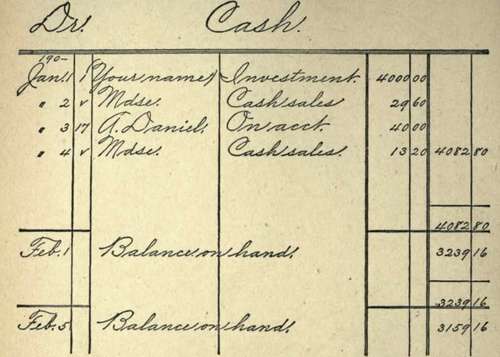 Dr. Cash.
190-
Jan. 1 1 (Your name) Investment. 4000 00
" 2 v Mdse. Cash sales 29 60
" 3 17 A. Daniel. On acct. 40 00
" 4 v Mdse. Cash sales. 13 20 4082 80
4082 80
Feb. 1 Balance on hand. 3239 16
3239 16
Feb. 5 Balance on hand. 3159 16